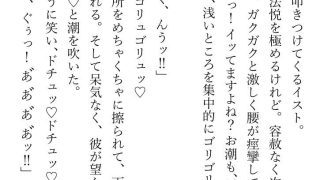 叩きつけてくるイスト。
法悦を極めるけれど。容赦なく
ガクガクと激しく腰が痙攣し
っ！イッてますよね？お潮も、
、浅いところを集中的にゴリゴリ
く、んうッ!!」
ゴリュゴリュッ♡
所をめちゃくちゃに擦られて、
れる。そして呆気なく、彼が望
♡と潮を吹いた。
に笑い、ドチュッ♡ドチュ
、ぐぅっ！あ゛あ゛あ゛あ゛ッ!!」